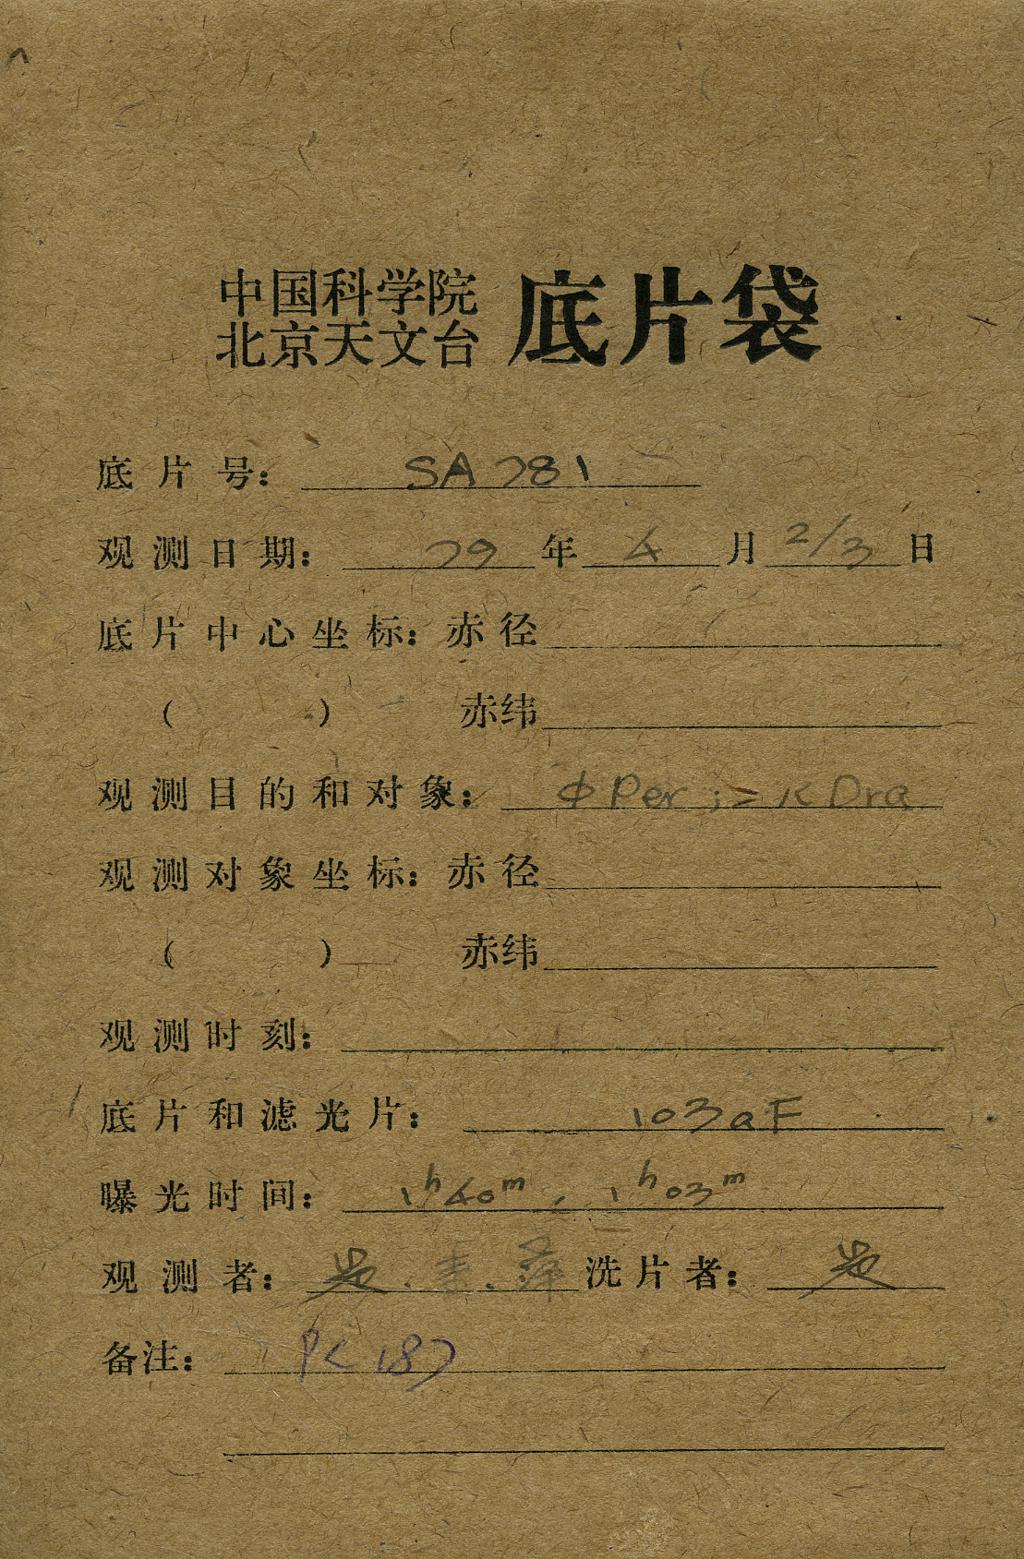 中国科学院
北京天文台 底片袋
底片号: SA781
观测日期: 79年4月2/3日
底片中心坐标: 赤径
( ) 赤纬
观测目的和对象: φ Per ; = κ Dra
观测对象坐标: 赤径
( ) 赤纬
观测时刻:
底片和滤光片: 103aF
曝光时间: 1h40m, 1h03m
观测者: 洗片者:
备注: PK 187